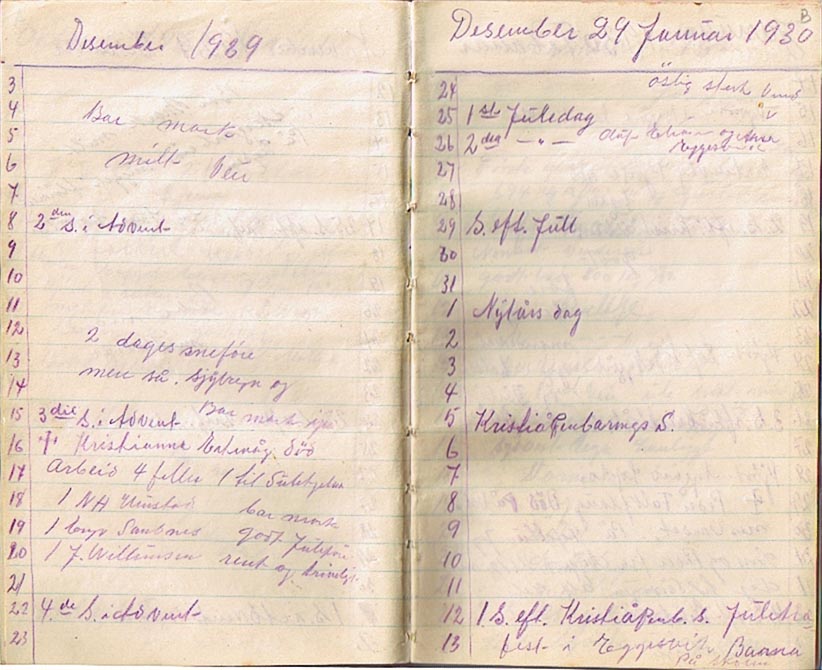 Desember 1929
3
4 Bar mark
5
6 mildt Veir
7
8 2den S. i Advent
9
10
11
12 2 dages sneføre
13
14 men så
15 3die S. i Advent Bar mark
16 † Kristianna död
17 Arbeid 4 feller 1 til
18 1 NH Unstad bar mark
19 1 Sandnes godt Juleføre
20 1 J. Willumsen rent og
21
22 4.de S. i Advent
23
B
Desember 29 Januar 1930
24 östlig sterk Vind
25 1st Juledag
26 2deg — " — og Eggesvik
27
28
29 S. eft. Jull
30
31
1 Nÿtårs dag
2
3
4
5 Kristiåpenbarings S.
6
7
8
9
10
11
12 1 S. eft. Kristiåpenb. S. Juletra
13 fest i Eggesvik Barna